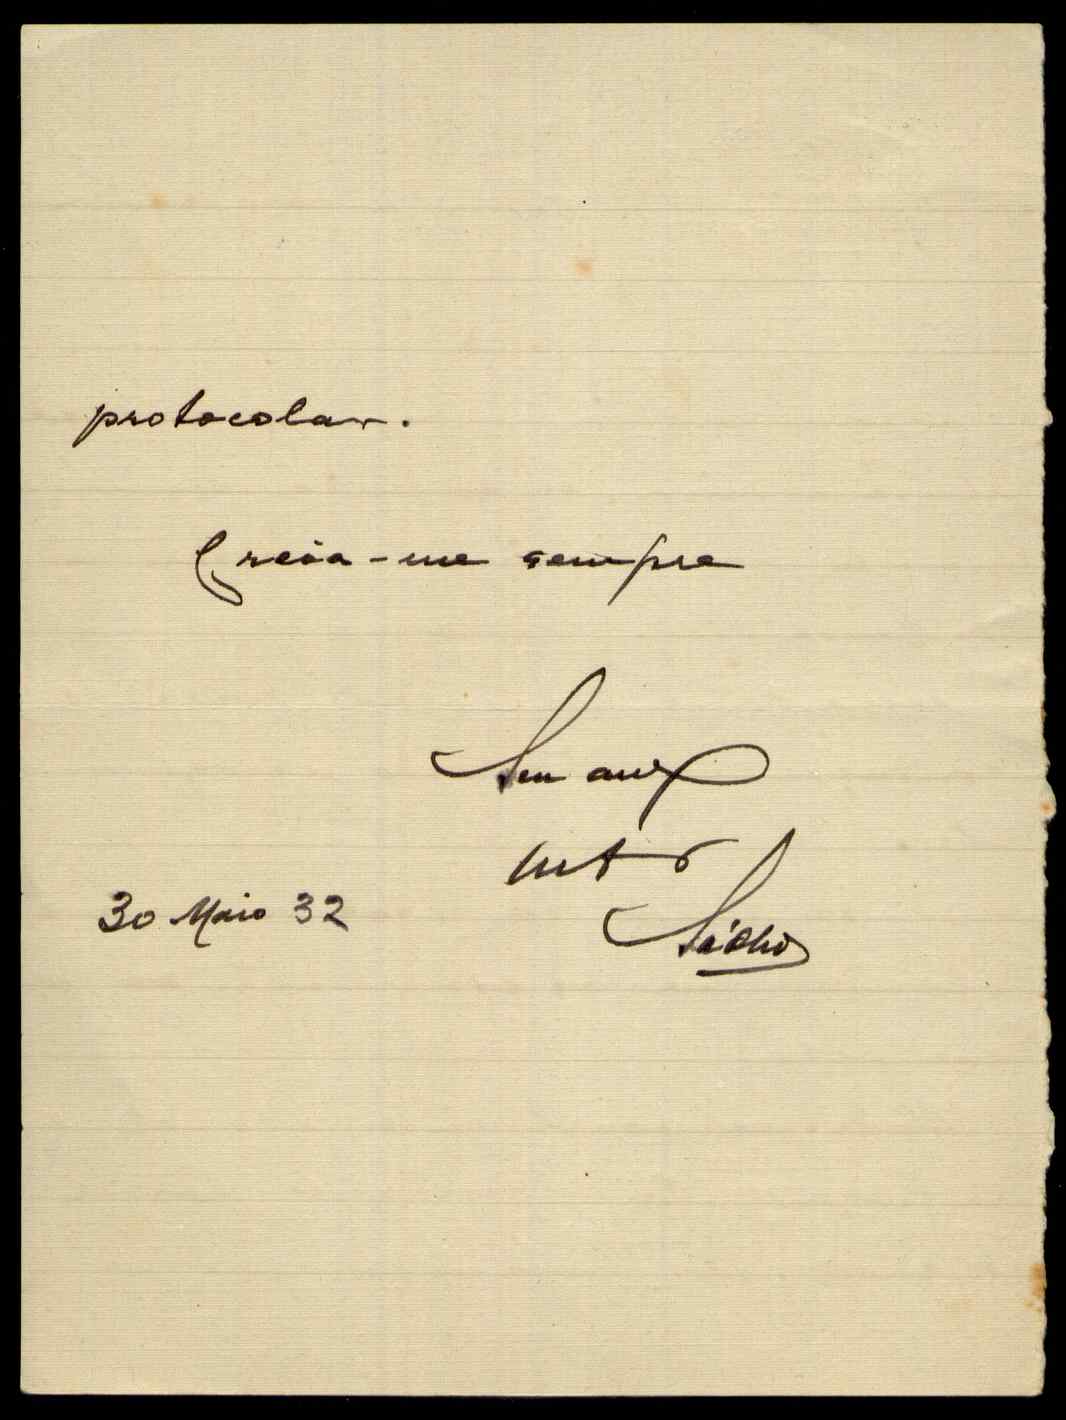 protocolar.
Creia-me sempre
Seu amº
mtº
30 Maio 32